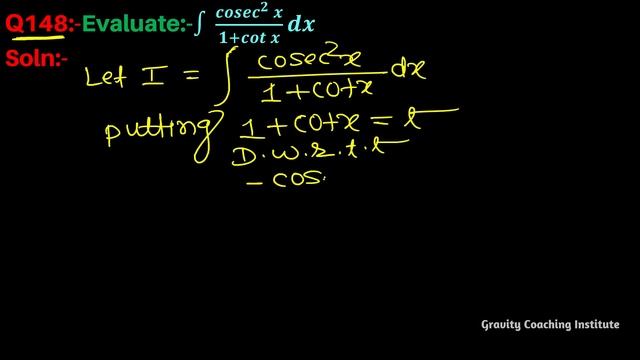 Q148:-Evaluate:-∫ cosec² x / 1+cot x dx
Soln:-
Let I = ∫ cosec²x / 1+cotx dx
putting 1+cotx = t
D.w.r.t.t
- cos
Gravity Coaching Institute